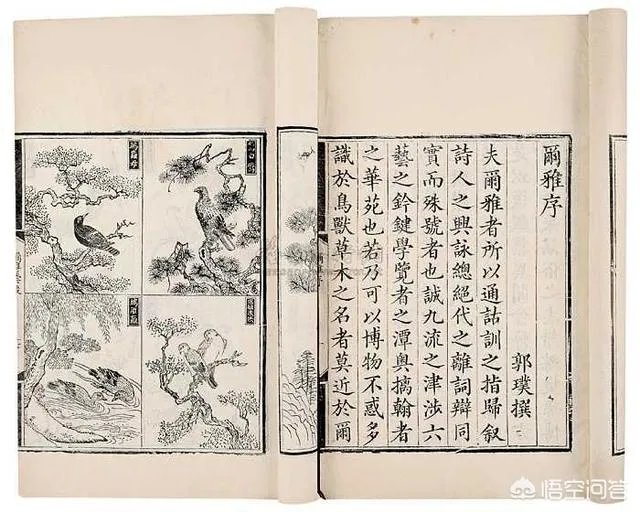 爾雅序
郭璞撰
夫爾雅者所以通詁訓之指歸叙
詩人之興詠總絕代之離詞辯同
實而殊號者也誠九流之津涉六
藝之鈐鍵學覽者之潭奧摛翰者
之華苑也若乃可以博物不惑多
識於鳥獸草木之名者莫近於爾
悟空问答